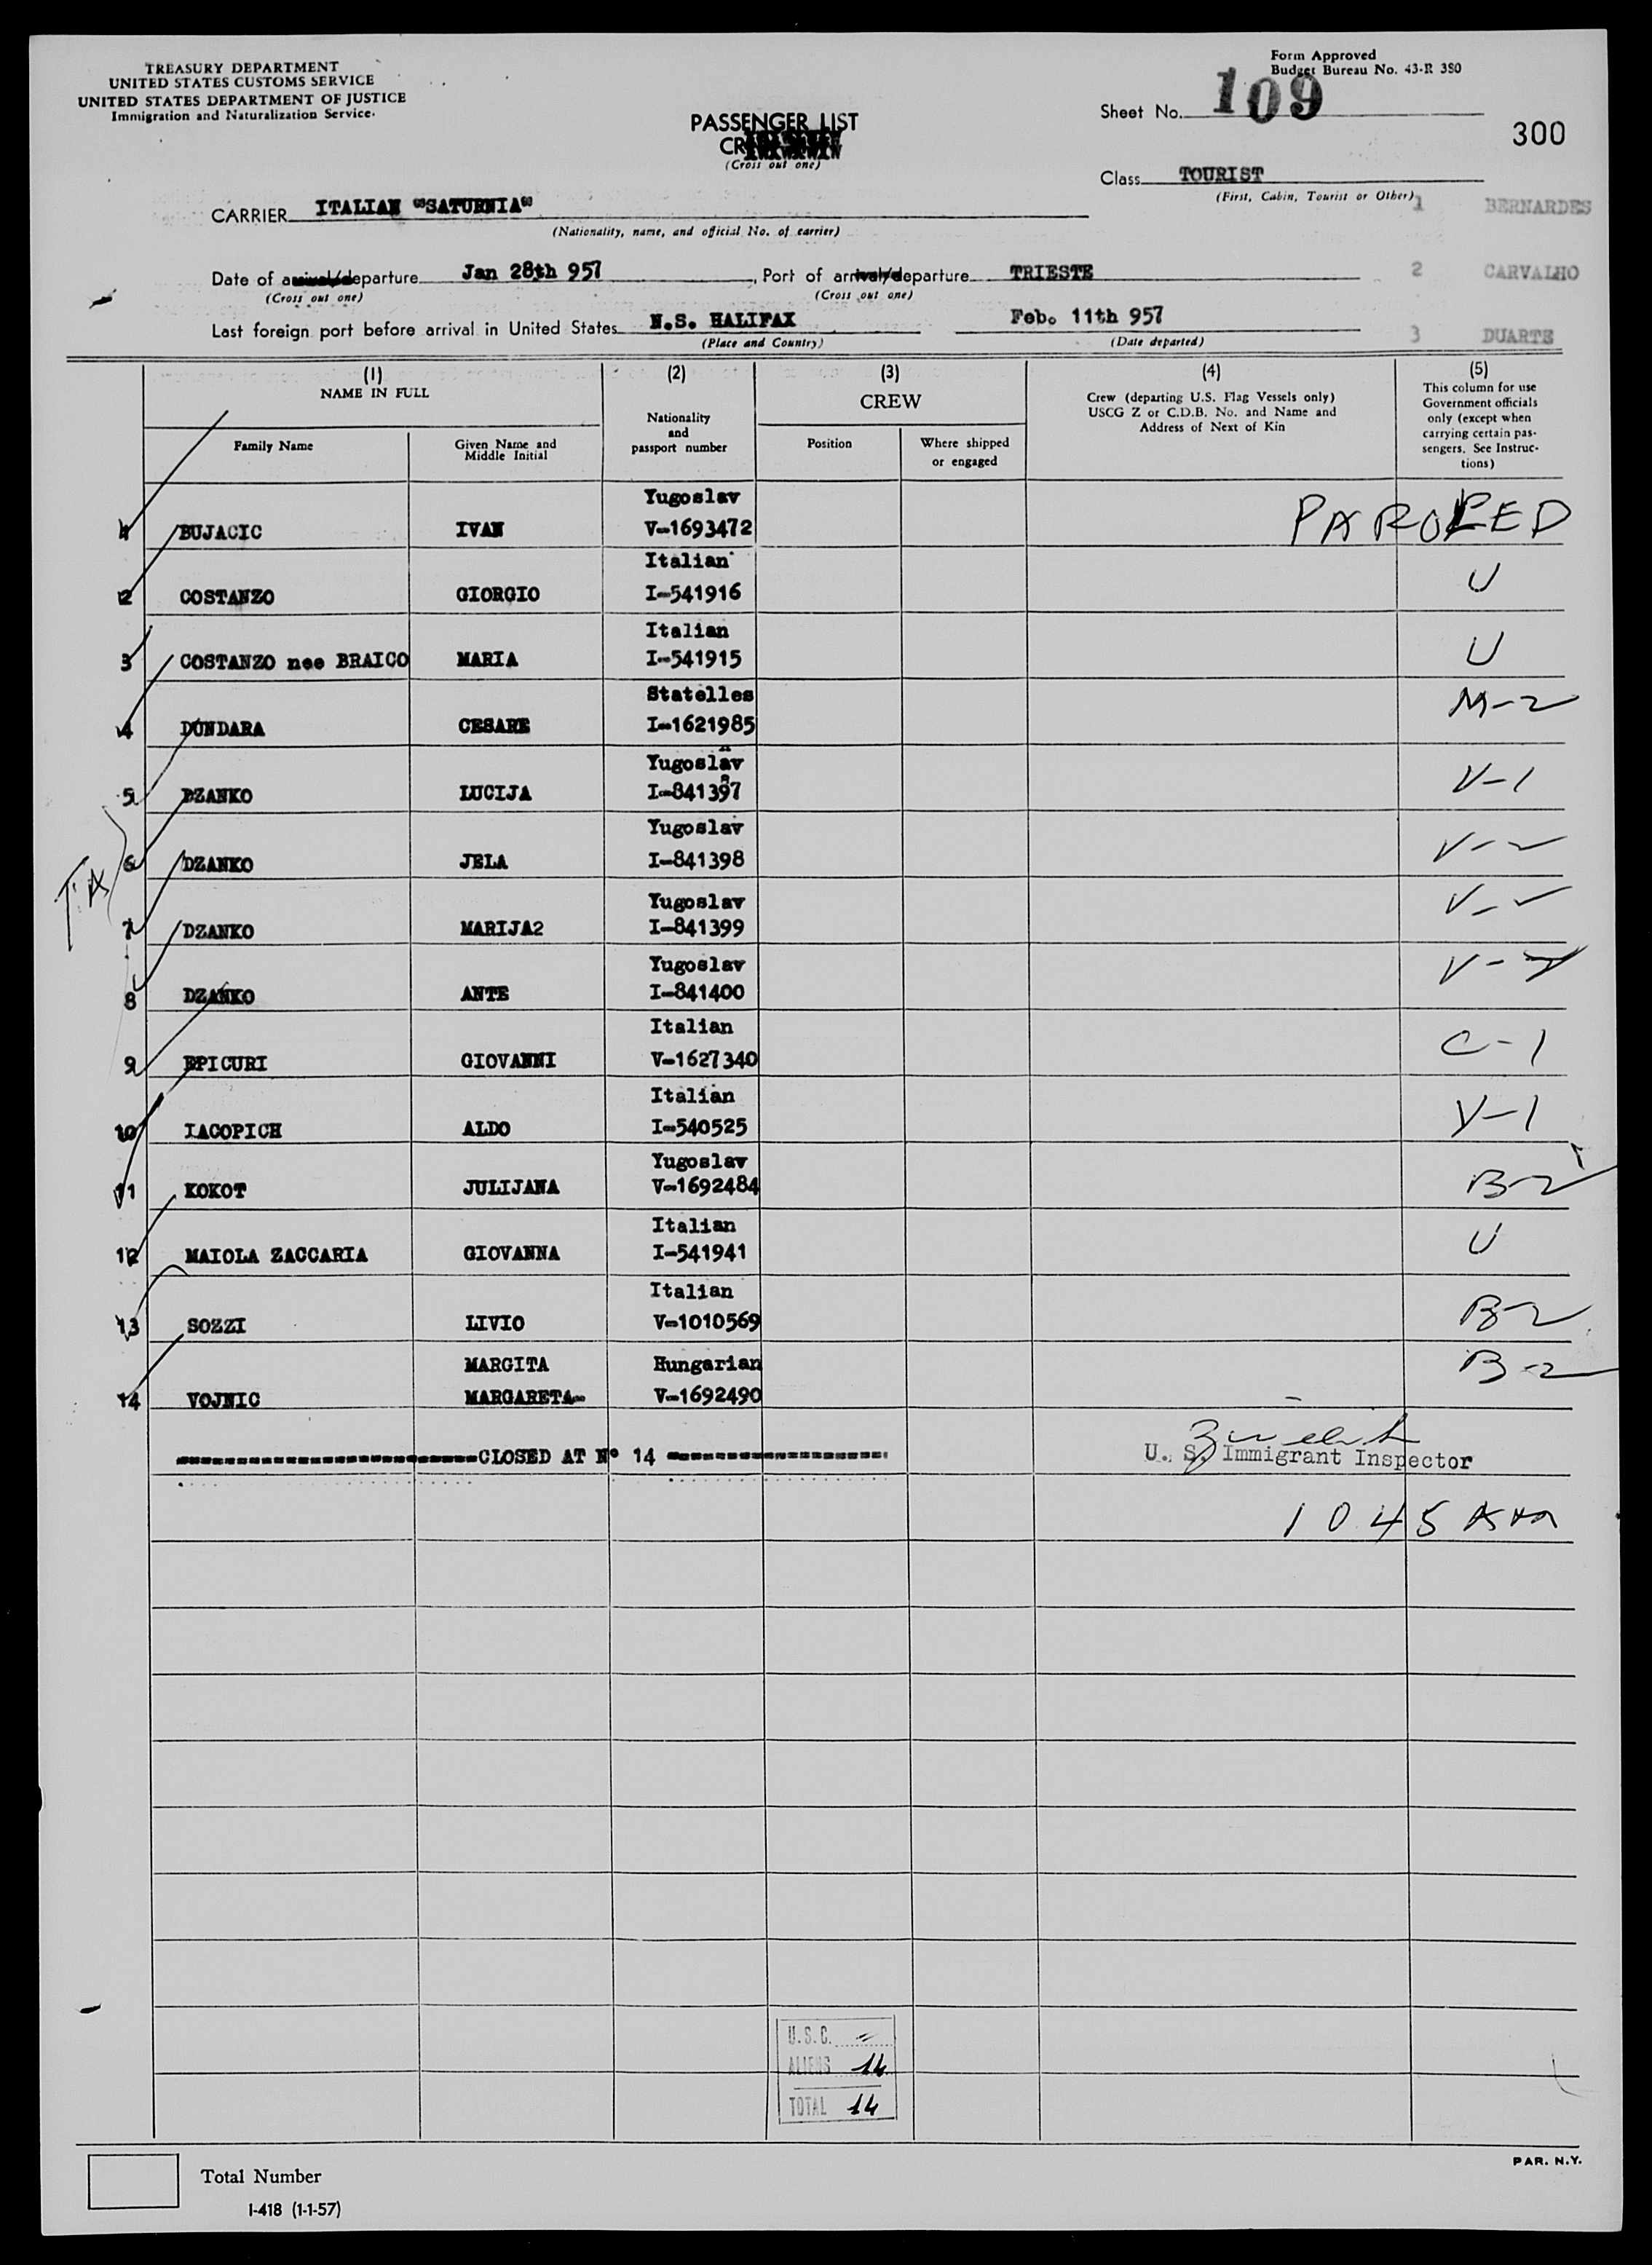 TREASURY DEPARTMENT
UNITED STATES CUSTOMS SERVICE
UNITED STATES DEPARTMENT OF JUSTICE
Immigration and Naturalization Service.
Form Approved
Budget Bureau No. 43-R 380
Sheet No. 109
300
PASSENGER LIST
(Cross out one)
Class TOURIST
(First, Cabin, Tourist or Other)
1 BERNARDES
CARRIER ITALIAN "SATURNIA"
(Nationality, name, and official No. of carrier)
2 CARVALHO
Date of arrival/departure Jan 28th 957, Port of arrival/departure TRIESTE
(Cross out one) (Cross out one)
Last foreign port before arrival in United States N.S. HALIFAX Feb. 11th 957
(Place and Country) (Date departed)
3 DUARTE
(1) NAME IN FULL
Family Name
Given Name and Middle Initial
(2)
Nationality and passport number
(3) CREW
Position
Where shipped or engaged
(4)
Crew (departing U.S. Flag Vessels only)
USCG Z or C.D.B. No. and Name and
Address of Next of Kin
(5)
This column for use
Government officials
only (except when
carrying certain pas-
sengers. See Instruc-
tions)
1 BUJACIC IVAN Yugoslav V-1693472 PAROLED
2 COSTANZO GIORGIO Italian I-541916 U
3 COSTANZO nee BRAICO MARIA Italian I-541915 U
4 DUNDARA CESARE Statelles I-1621985 M-2
5 DZANKO LUCIJA Yugoslav I-841397 V-1
6 DZANKO JELA Yugoslav I-841398 V-2
7 DZANKO MARIJA2 Yugoslav I-841399 V-2
8 DZANKO ANTE Yugoslav I-841400 V-2
T.A
9 EPICURI GIOVANNI Italian V-1627340 C-1
10 IACOPICH ALDO Italian I-540525 V-1
11 KOKOT JULIJANA Yugoslav V-1692484 B-2
12 MAIOLA ZACCARIA GIOVANNA Italian I-541941 U
13 SOZZI LIVIO Italian V-1010569 B-2
14 VOJNIC MARGITA MARGARETA- Hungarian V-1692490 B-2
CLOSED AT Nº 14
U. S. Immigrant Inspector
1045 AM
U.S.C. -
ALIENS 14
TOTAL 14
Total Number
I-418 (1-1-57)
PAR. N.Y.